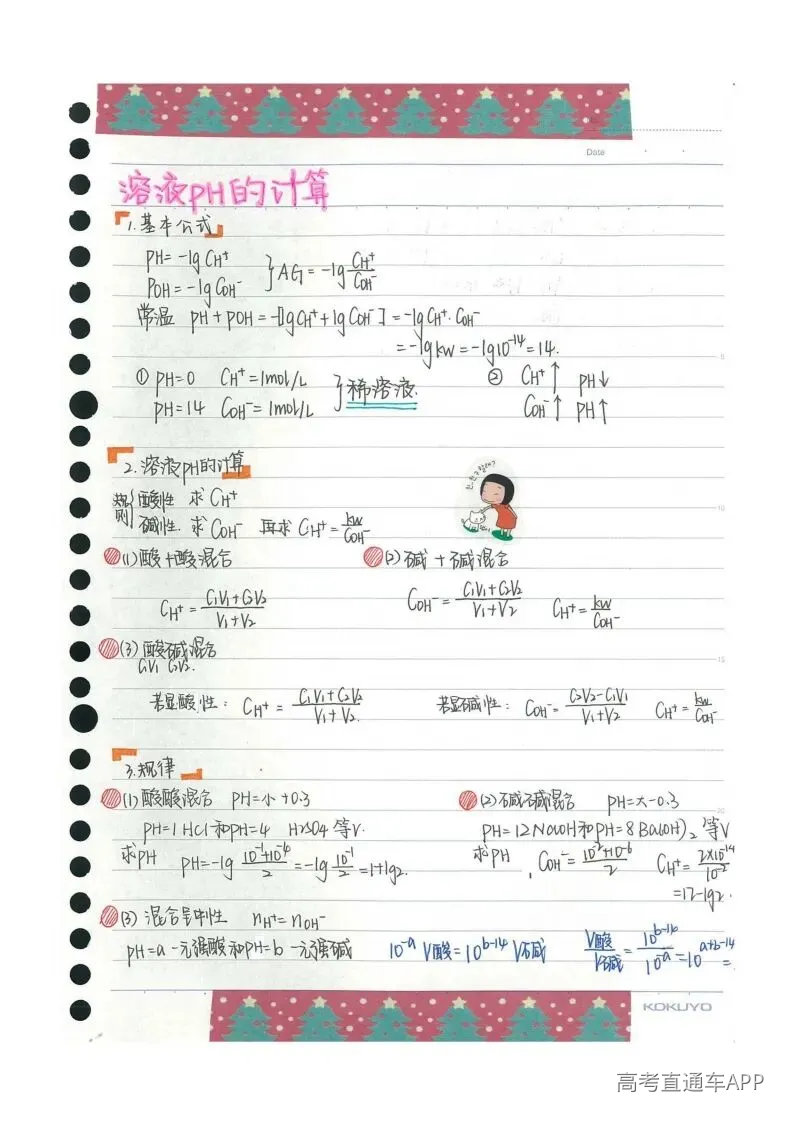 Date
溶液pH的计算
1.基本公式
pH=-lgCH⁺
pOH=-lgCOH⁻
}AG=-lg CH⁺/COH⁻
常温 pH+pOH=-[lgCH⁺+lgCOH⁻]=-lgCH⁺·COH⁻
=-lgkw=-lg10⁻¹⁴=14.
① pH=0 CH⁺=1mol/L
pH=14 COH⁻=1mol/L
}稀溶液.
② CH⁺↑ pH↓
COH⁻↑ pH↑
5
2.溶液pH的计算
规则{酸性 求CH⁺
碱性.求COH⁻ 再求CH⁺=kw/COH⁻
10
(1)酸+酸混合
(2)碱+碱混合
CH⁺=C₁V₁+C₂V₂/V₁+V₂
COH⁻=C₁V₁+C₂V₂/V₁+V₂ CH⁺=kw/COH⁻
(3)酸碱混合
C₁V₁ C₂V₂.
15
若显酸性: CH⁺=C₁V₁+C₂V₂/V₁+V₂.
若显碱性: COH⁻=C₂V₂-C₁V₁/V₁+V₂ CH⁺=kw/COH⁻
3.规律
(1)酸酸混合 pH=小+0.3
pH=1 HCl和pH=4 H₂SO₄等V.
求pH pH=-lg 10⁻¹+10⁻⁴/2=-lg 10⁻¹/2=1+lg2.
(2)碱碱混合 pH=大-0.3
20
pH=12NaOH和pH=8Ba(OH)₂等V
求pH, COH⁻=10⁻²+10⁻⁶/2 CH⁺=2×10⁻¹⁴/10⁻²
=12-lg2.
(3)混合呈中性 nH⁺=nOH⁻
pH=a一元强酸和pH=b一元强碱 10⁻ᵃV酸=10ᵇ⁻¹⁴V碱 V酸/V碱=10ᵇ⁻¹⁴/10⁻ᵃ=10ᵃ⁺ᵇ⁻¹⁴=
KOKUYO
高考直通车APP